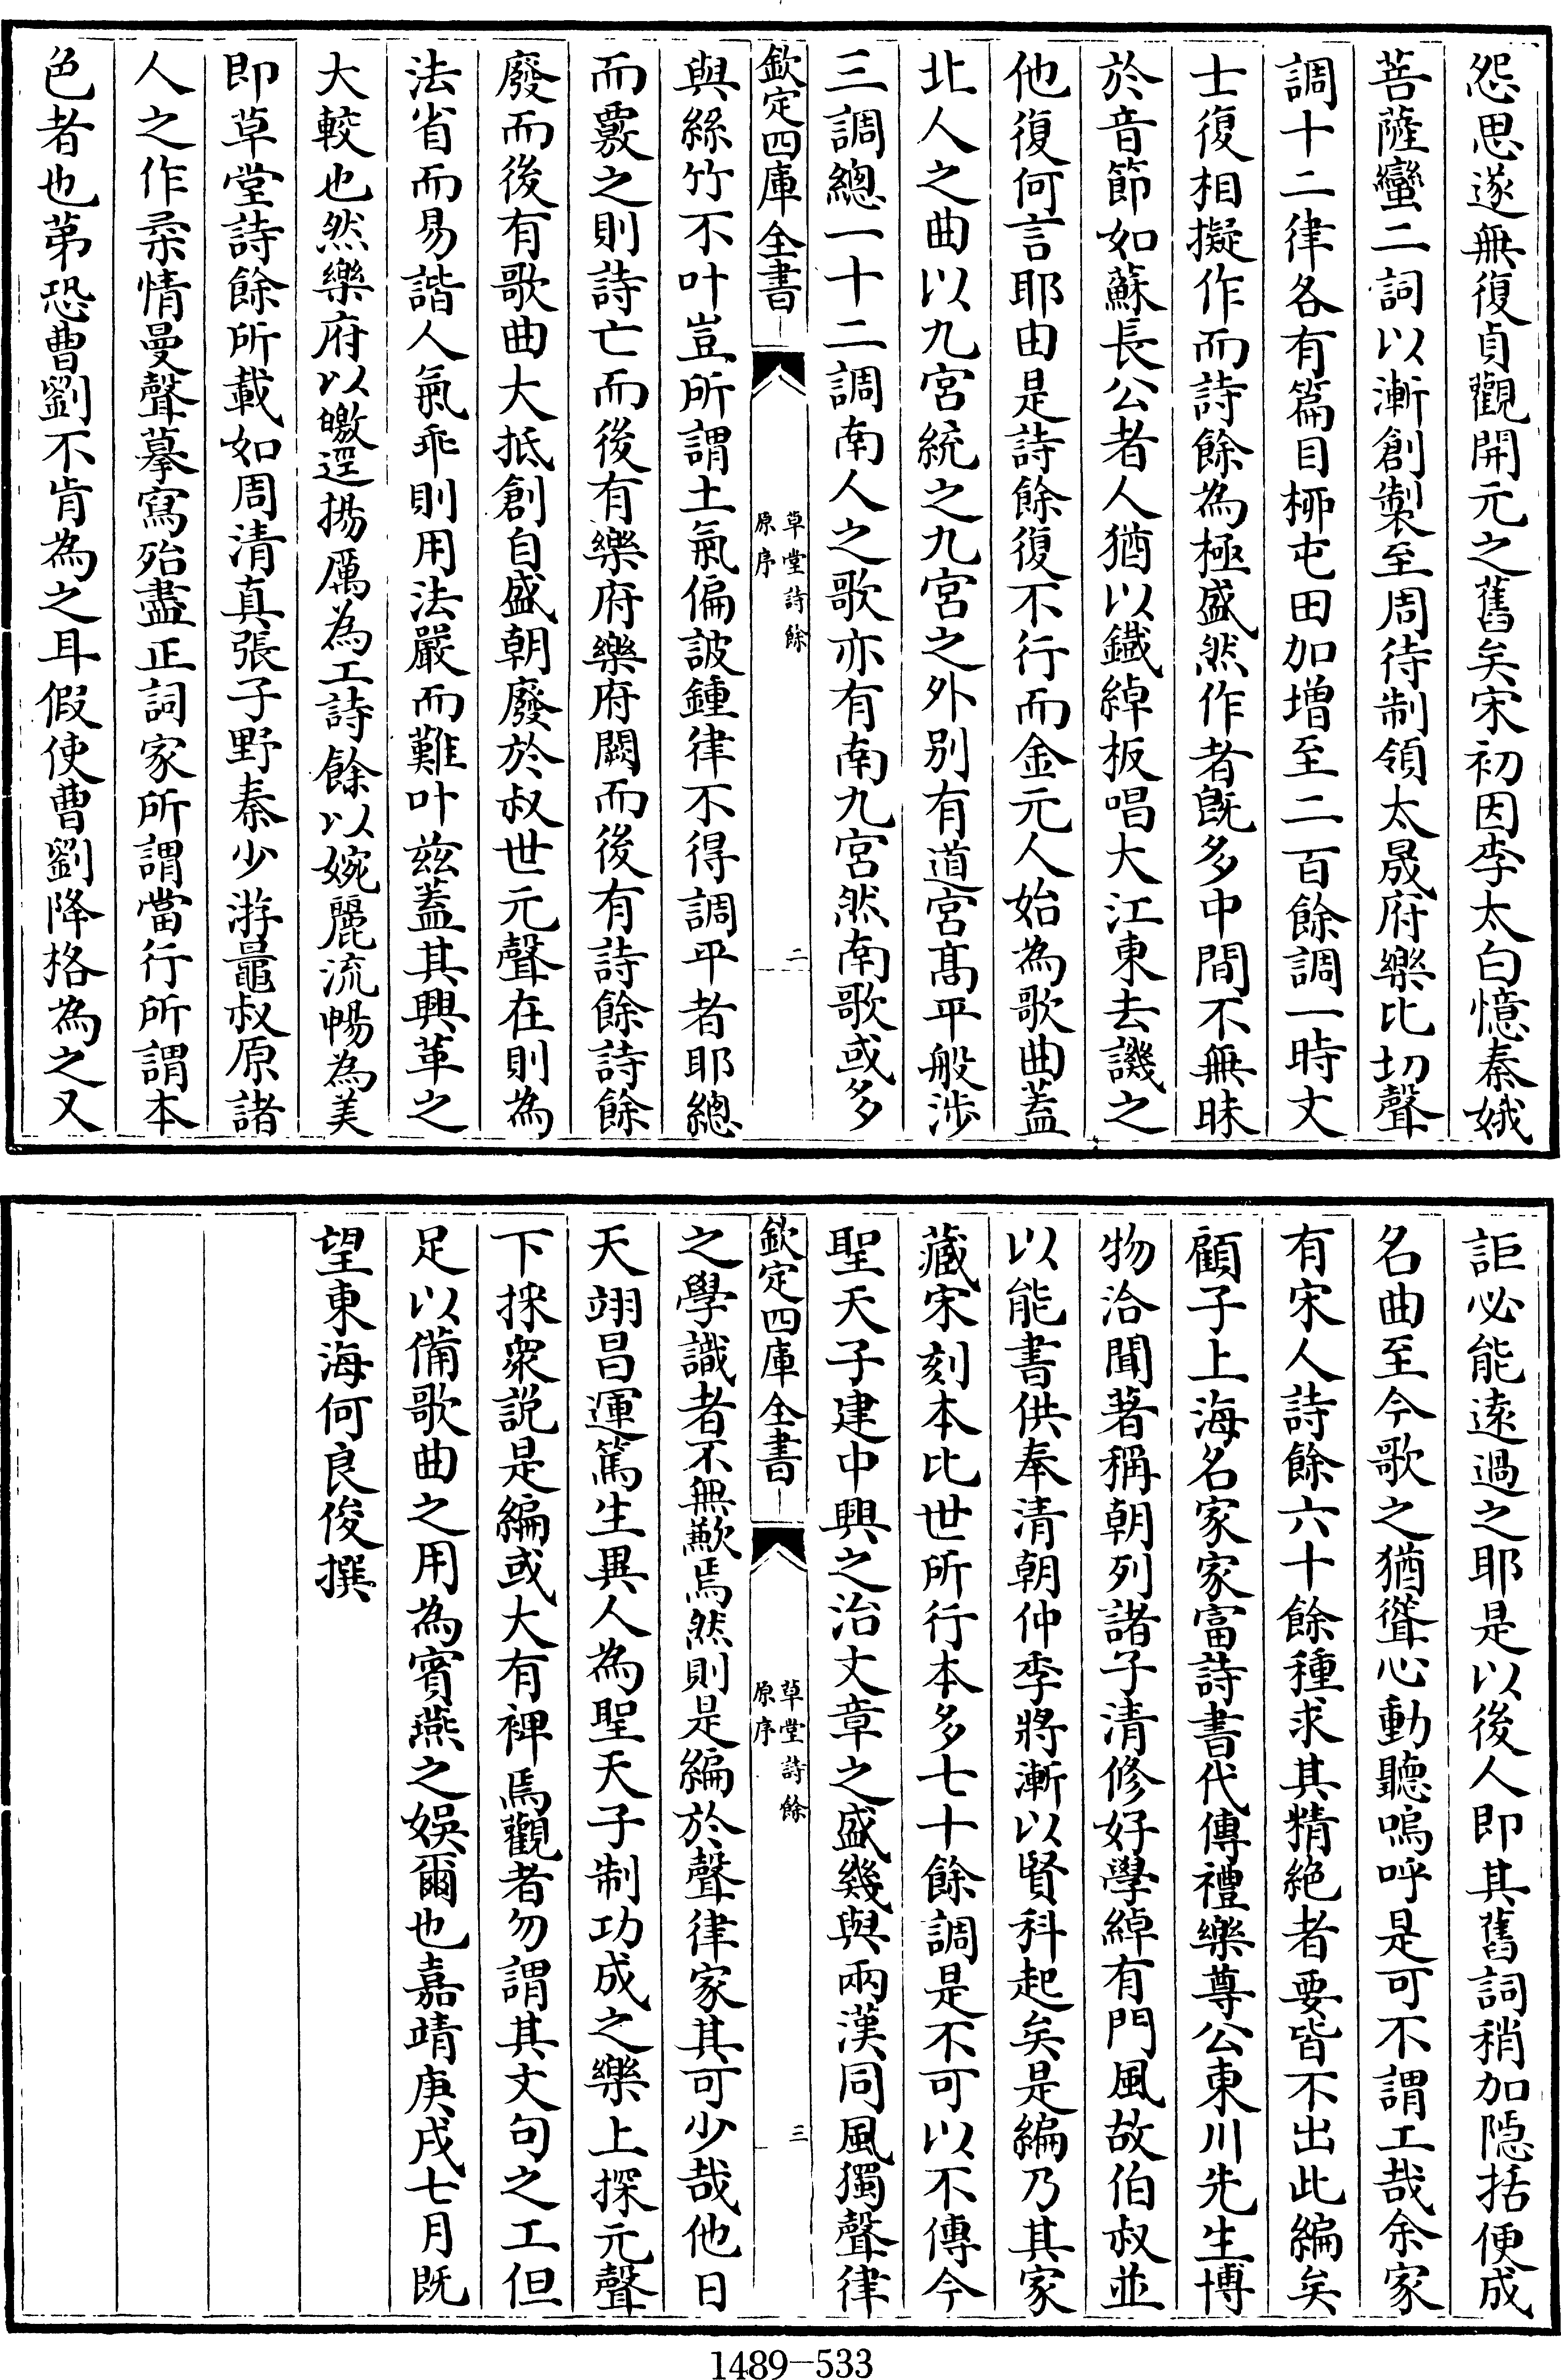 怨思遂無復貞觀開元之舊矣宋初因李太白憶秦娥
菩薩蠻二詞以漸創製至周待制領太晟府樂比切聲
調十二律各有篇目柳屯田加增至二百餘調一時文
士復相擬作而詩餘為極盛然作者既多中間不無昧
於音節如蘇長公者人猶以鐵綽板唱大江東去譏之
他復何言耶由是詩餘復不行而金元人始為歌曲蓋
北人之曲以九宮統之九宮之外别有道宮髙平般渉
三調總一十二調南人之歌亦有南九宮然南歌或多
欽定四庫全書
草堂詩餘
原序
二
與絲竹不叶豈所謂土氣偏詖鍾律不得調平者耶總
而覈之則詩亡而後有樂府樂府闕而後有詩餘詩餘
廢而後有歌曲大抵創自盛朝廢於叔世元聲在則為
法省而易諧人氣乖則用法嚴而難叶兹蓋其興革之
大較也然樂府以皦逕揚厲為工詩餘以婉麗流暢為美
即草堂詩餘所載如周清真張子野秦少游鼂叔原諸
人之作柔情曼聲摹寫殆盡正詞家所謂當行所謂本
色者也第恐曹劉不肯為之耳假使曹劉降格為之又
詎必能遠過之耶是以後人即其舊詞稍加隠括便成
名曲至今歌之猶聳心動聽嗚呼是可不謂工哉余家
有宋人詩餘六十餘種求其精絶者要皆不出此編矣
顧子上海名家家富詩書代傳禮樂尊公東川先生博
物洽聞著稱朝列諸子清修好學綽有門風故伯叔並
以能書供奉清朝仲季將漸以賢科起矣是編乃其家
藏宋刻本比世所行本多七十餘調是不可以不傳今
聖天子建中興之治文章之盛幾與兩漢同風獨聲律
欽定四庫全書
草堂詩餘
原序
三
之學識者不無歉焉然則是編於聲律家其可少哉他日
天翊昌運篤生異人為聖天子制功成之樂上探元聲
下採衆説是編或大有裨焉觀者勿謂其文句之工但
足以備歌曲之用為賓燕之娛爾也嘉靖庚戌七月既
望東海何良俊撰
1489—533